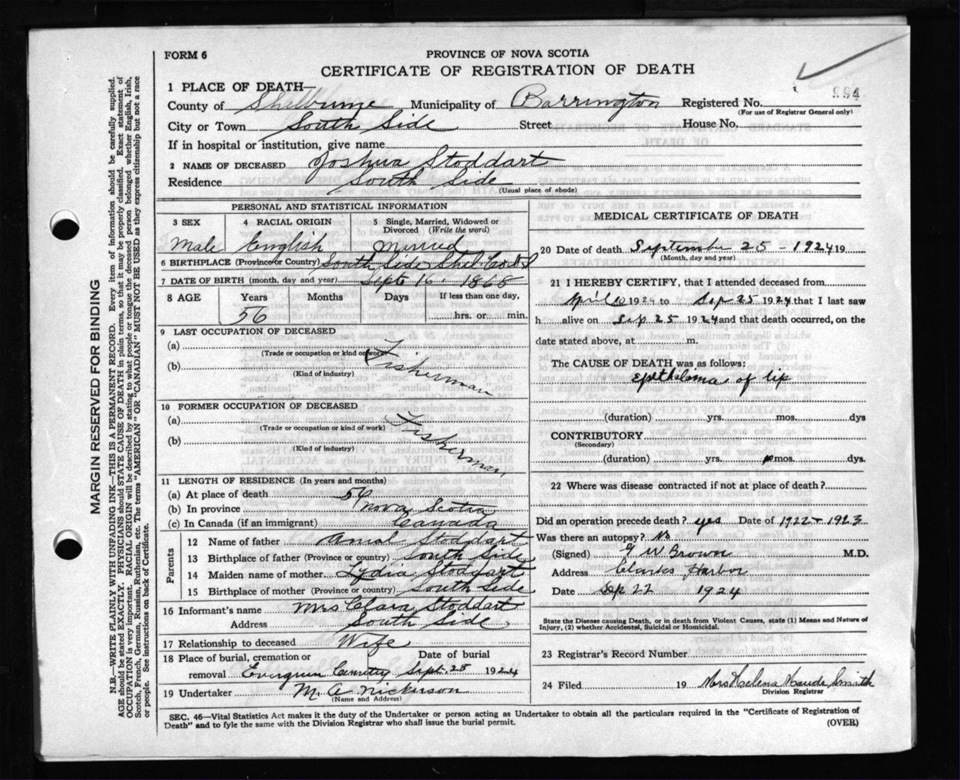 FORM 6
PROVINCE OF NOVA SCOTIA
CERTIFICATE OF REGISTRATION OF DEATH
994
1 PLACE OF DEATH—
County of Shelburne Municipality of Barrington Registered No.
(For use of Registrar General only)
City or Town South Side Street House No.
If in hospital or institution, give name
2 NAME OF DECEASED Joshua Stoddart
Residence South Side
(Usual place of abode)
PERSONAL AND STATISTICAL INFORMATION
3 SEX 4 RACIAL ORIGIN 5 Single, Married, Widowed or Divorced (Write the word)
Male English Married
6 BIRTHPLACE (Province or Country) South Side Shel. Co. N.S
7 DATE OF BIRTH (month, day and year) Sept 16. 1868
8 AGE Years Months Days If less than one day,
56 hrs. or min.
9 LAST OCCUPATION OF DECEASED
(a) Fisherman
(Trade or occupation or kind of work)
(b)
(Kind of industry)
10 FORMER OCCUPATION OF DECEASED
(a) Fisherman
(Trade or occupation or kind of work)
(b)
(Kind of industry)
11 LENGTH OF RESIDENCE (In years and months)
(a) At place of death 56
(b) In province Nova Scotia
(c) In Canada (if an immigrant) Canada
Parents
12 Name of father Stoddart
13 Birthplace of father (Province or country) South Side
14 Maiden name of mother Lydia Stoddart
15 Birthplace of mother (Province or country) South Side
16 Informant's name Mrs Clara Stoddart
Address South Side
17 Relationship to deceased Wife
18 Place of burial, cremation or removal Evergreen Cemetery Date of burial Sept. 25 1924
19 Undertaker M. A. Nickerson
(Name and Address)
MEDICAL CERTIFICATE OF DEATH
20 Date of death September 25 - 1924 19
(Month, day and year)
21 I HEREBY CERTIFY, that I attended deceased from
April 1924 to Sep 25 1924 that I last saw
h alive on Sep 25 1924 and that death occurred, on the
date stated above, at m.
The CAUSE OF DEATH was as follows:
Epithelioma of lip
(duration) yrs. mos. dys
CONTRIBUTORY
(Secondary)
(duration) yrs. mos. dys.
22 Where was disease contracted if not at place of death?
Did an operation precede death? yes Date of 1922 + 1923
Was there an autopsy? No
(Signed) G W Brown M.D.
Address Clarks Harbor
Date Sep 22 1924
State the Disease causing Death, or in death from Violent Causes, state (1) Means and Nature of
Injury, (2) whether Accidental, Suicidal or Homicidal.
23 Registrar's Record Number
24 Filed 19 Mrs Helena Maude Smith
Division Registrar
SEC. 46—Vital Statistics Act makes it the duty of the Undertaker or person acting as Undertaker to obtain all the particulars required in the "Certificate of Registration of
Death" and to fyle the same with the Division Registrar who shall issue the burial permit.
(OVER)
MARGIN RESERVED FOR BINDING
N.B.—WRITE PLAINLY WITH UNFADING INK—THIS IS A PERMANENT RECORD. Every item of information should be carefully supplied.
AGE should be stated EXACTLY. PHYSICIANS should STATE CAUSE OF DEATH in plain terms, so that it may be properly classified. Exact statement of
OCCUPATION is very important. RACIAL ORIGIN will be described by stating to what people or tongue the deceased person belonged whether English, Irish,
Scotch, French, German, Russian, Ruthenian, etc. The terms "AMERICAN" OR "CANADIAN" MUST NOT BE USED as they express citizenship but not a race
or people. See instructions on back of Certificate.